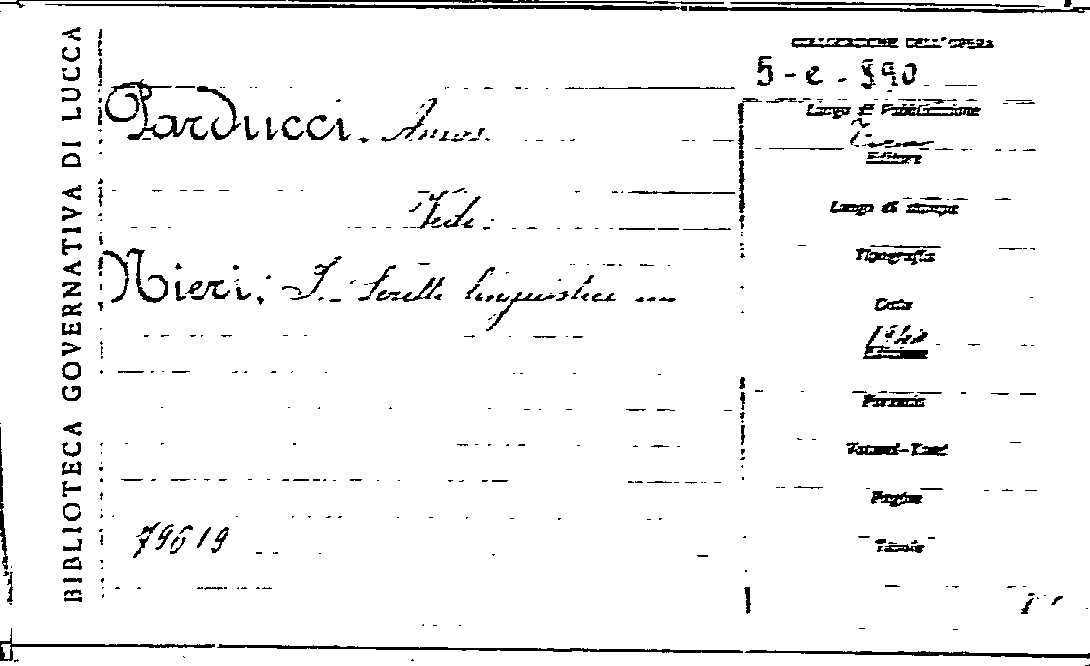 BIBLIOTECA GOVERNATIVA DI LUCCA
COLLOCAZIONE DELL'OPERA
5-e-990
Parducci. Amos.
Vedi:
Nieri: I. Scelta linguistica
79619
Luogo di Pubblicazione
Editore
Luogo di stampa
Tipografia
Data
Edizione
Formato
Volumi-Tomi
Pagine
Tavole